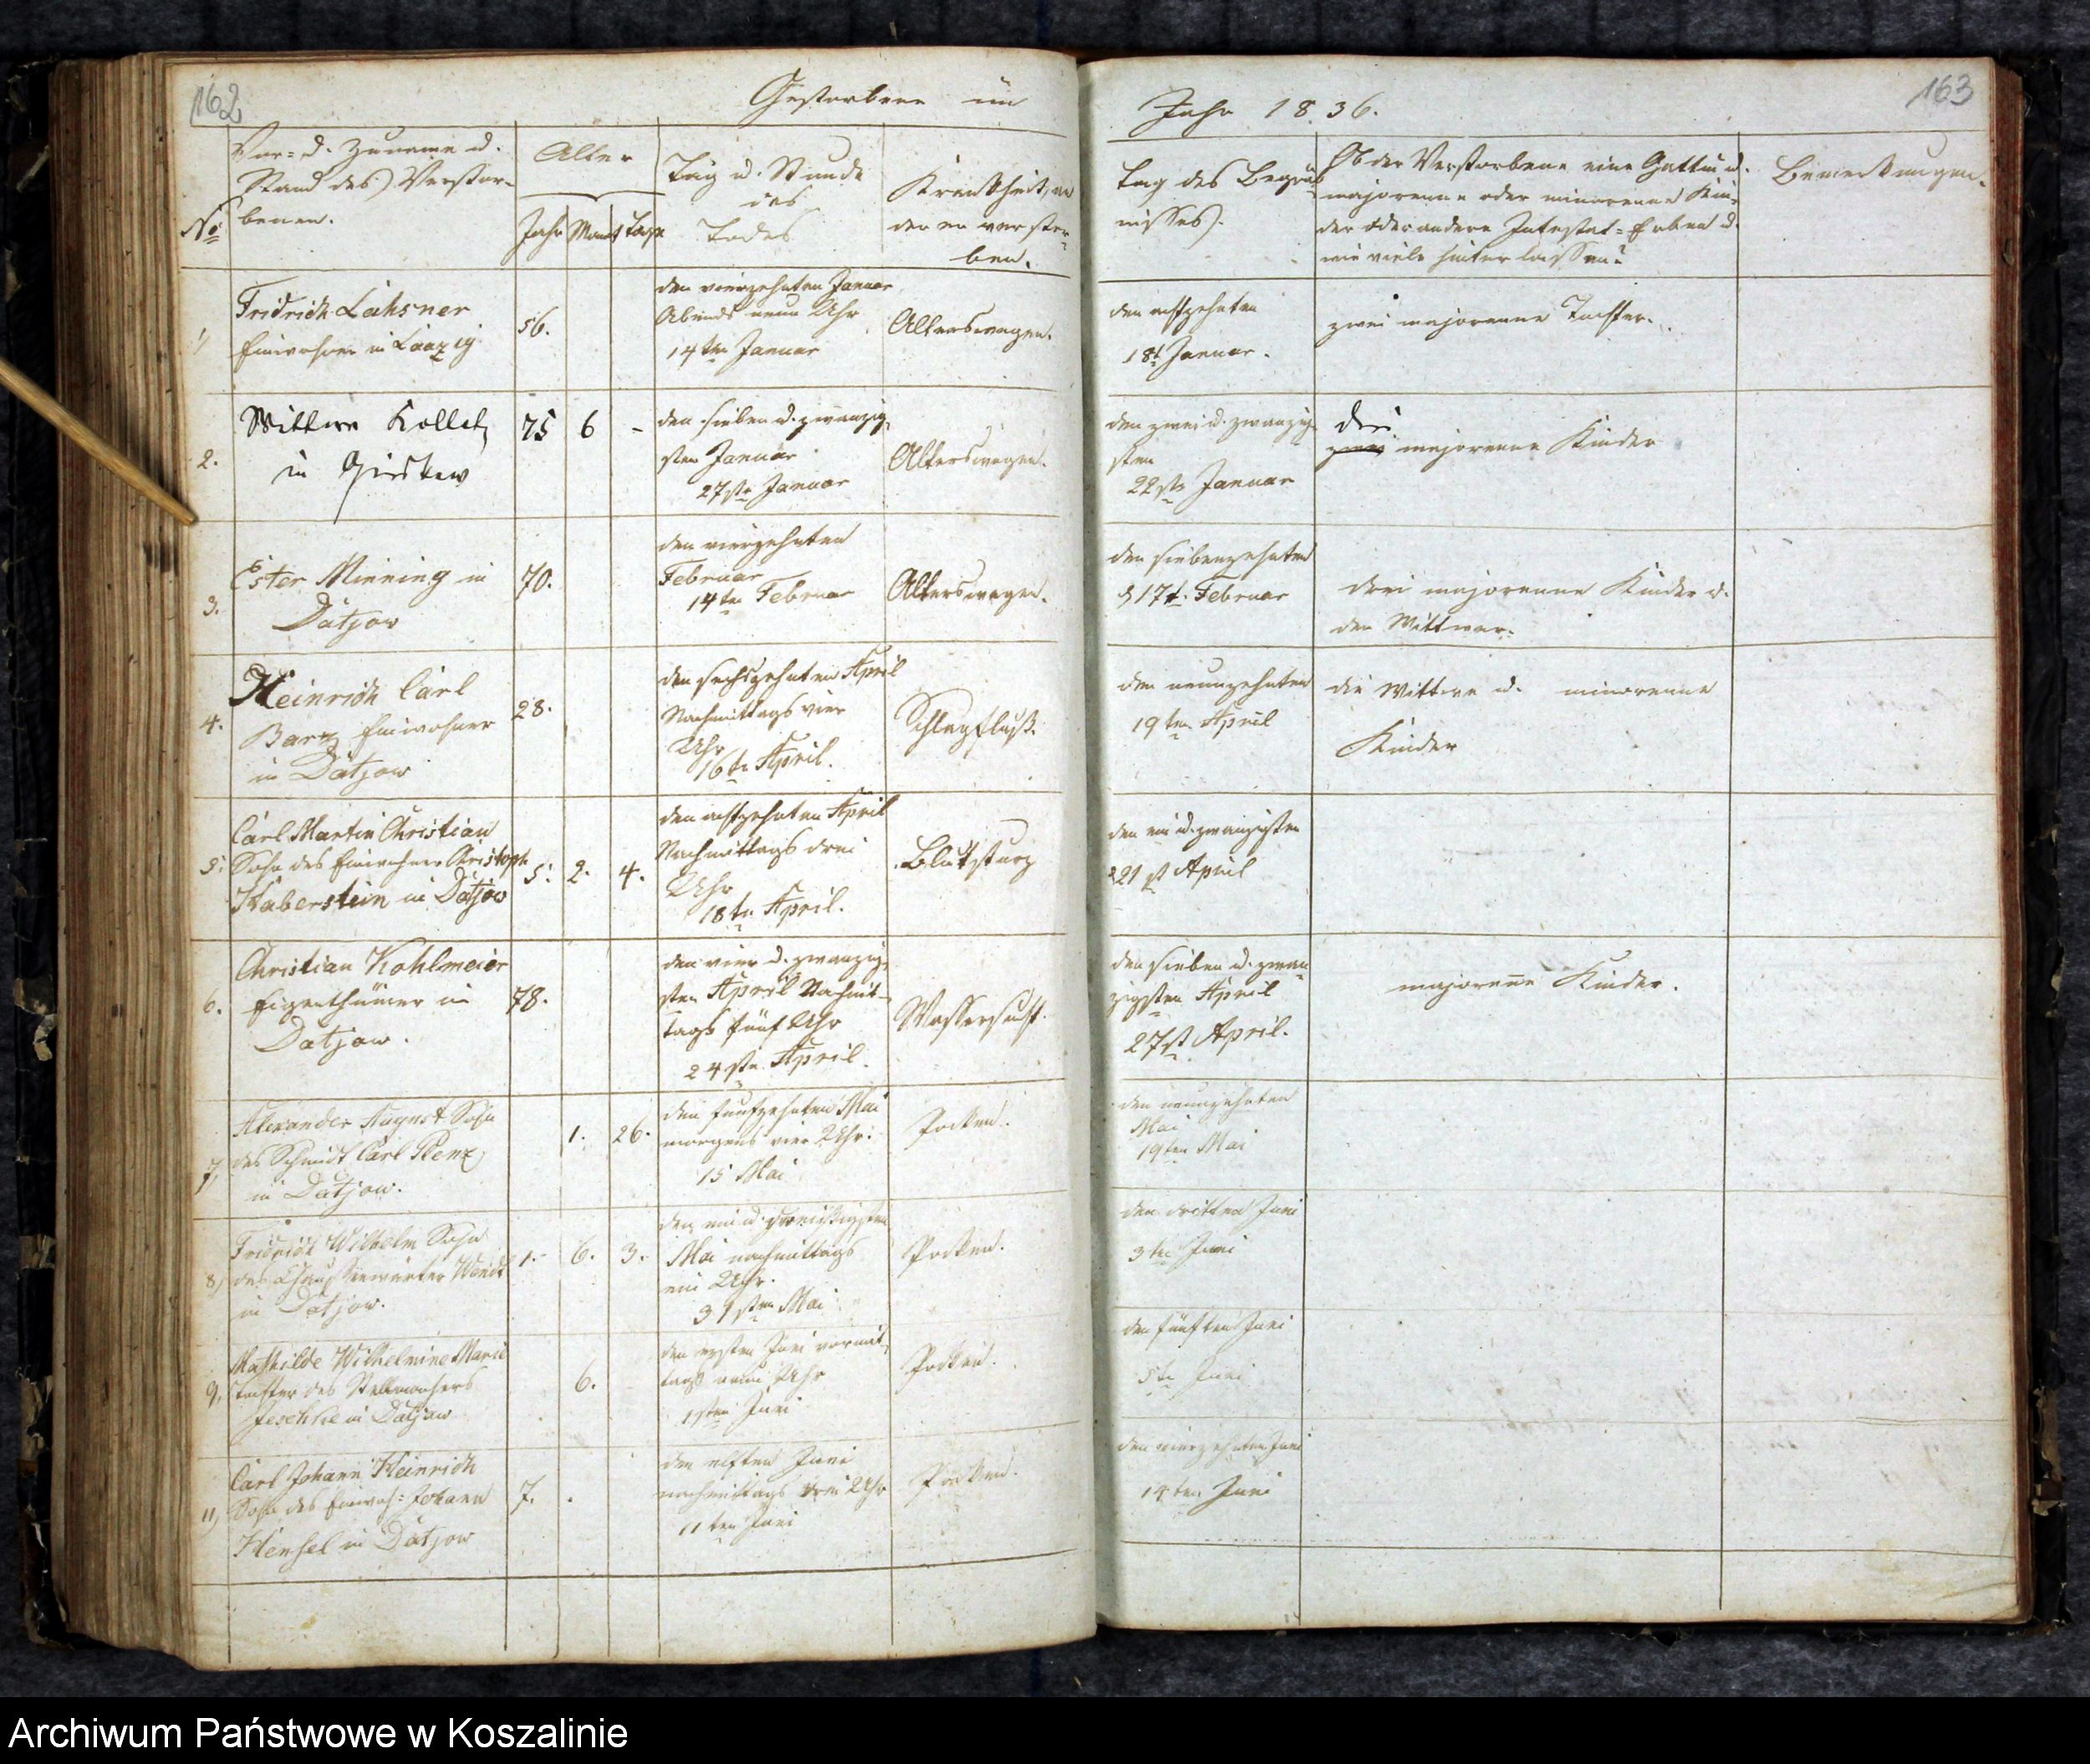 162
Gestorbene im
No
Vor= u. Zuname u.
Stand des Verstor-
benen.
Alter
Jahr Monat Tage
Tag u. Stunde
des
Todes
Krankheit, an
der er verstor-
ben.
1)
Fridrich Lahsner
Einwohner in Laazig
56.
den vierzehnten Januar
Abends neun Uhr
14ten Januar
Alterswegen.
2.
Wittwe Kollat
in
75 6 -
den sieben u. zwanzig
sten Januar
27ste Januar
Alterswegen.
3.
Ester Minning in
Datjow
70.
den vierzehnten
Februar
14ten Februar
Alterswegen.
4.
Heinrich Carl
Barz Einwohner
in Datjow
28.
den sechszehnten April
Nachmittags vier
Uhr
16te April.
Schlagfluß.
5.
Carl Martin Christian
Sohn des Einwohners Christoph
Haberstein in Datjow
5. 2. 4.
den achtzehnten April
Nachmittags drei
Uhr
18te April.
Blutsturz
6.
Christian Kohlmeier
Eigenthümer in
Datjow.
78.
den vier u. zwanzig
sten April Nachmit-
tags fünf Uhr
24ste April.
Wassersucht.
7,
Alexander August Sohn
des Schmidt Carl
in Datjow.
1. 26.
den fünfzehnten Mai
morgens vier Uhr.
15 Mai
Pocken.
8)
Fridrich Wilhelm Sohn
des Chaussewärter Wendt
in Datjow.
1. 6. 3.
den ein u. dreißigsten
Mai nachmittags
ein Uhr.
31sten Mai
Pocken.
9,
Mathilde Wilhelmine Marie
Tochter des Stellmachers
Jeschke in Datjow
6.
den ersten Juni vormit
tags neun Uhr
1sten Juni
Pocken.
11)
Carl Johann Heinrich
Sohn des Einwoh= Johann
Hensel in Datjow
7.
den elften Juni
nachmittags drei Uhr
11ten Juni
Pocken.
163
Jahr 1836.
Tag des Begräb
nisses.
Ob der Verstorbene eine Gattin u.
majorenne oder minorenne Kin-
der oder andere Intestat=Erben u.
wie viele hinterlassen?
Bemerkungen.
den achtzehnten
18t Januar.
zwei majorenne Tochter.
den zwei u. zwanzig
sten
22ste Januar
drei
majorenne Kinder
den siebenzehnten
17t. Februar
drei majorenne Kinder u.
den Wittwer.
den neunzehnten
19ten April
die Wittwe u. minorenne
Kinder
den ein u. zwanzigsten
21st April
den sieben u. zwan
zigsten April
27st April.
majorene Kinder.
den neunzehnten
Mai
19ten Mai
den dritten Juni
3te Juni
den fünften Juni
5te Juni
den vierzehnten Juni
14ten Juni
Archiwum Państwowe w Koszalinie